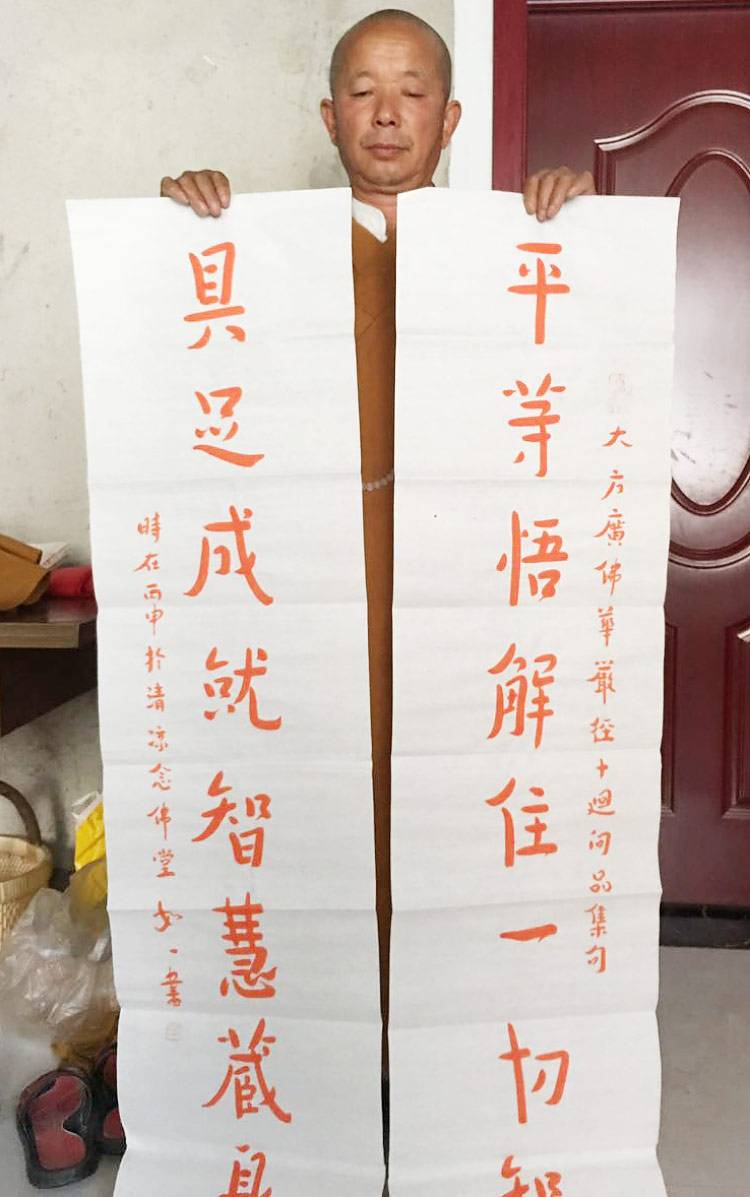 大方廣佛華嚴經十迴向品集句
平等悟解住一切智
具足成就智慧藏身
時在丙申於清凉念佛堂如一書